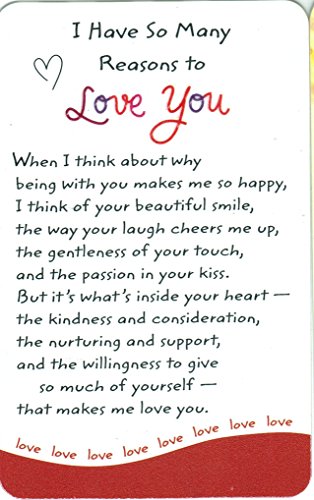 I Have So Many
Reasons to
Love You
When I think about why
being with you makes me so happy,
I think of your beautiful smile,
the way your laugh cheers me up,
the gentleness of your touch,
and the passion in your kiss.
But it's what's inside your heart —
the kindness and consideration,
the nurturing and support,
and the willingness to give
so much of yourself —
that makes me love you.
love love love love love love love love